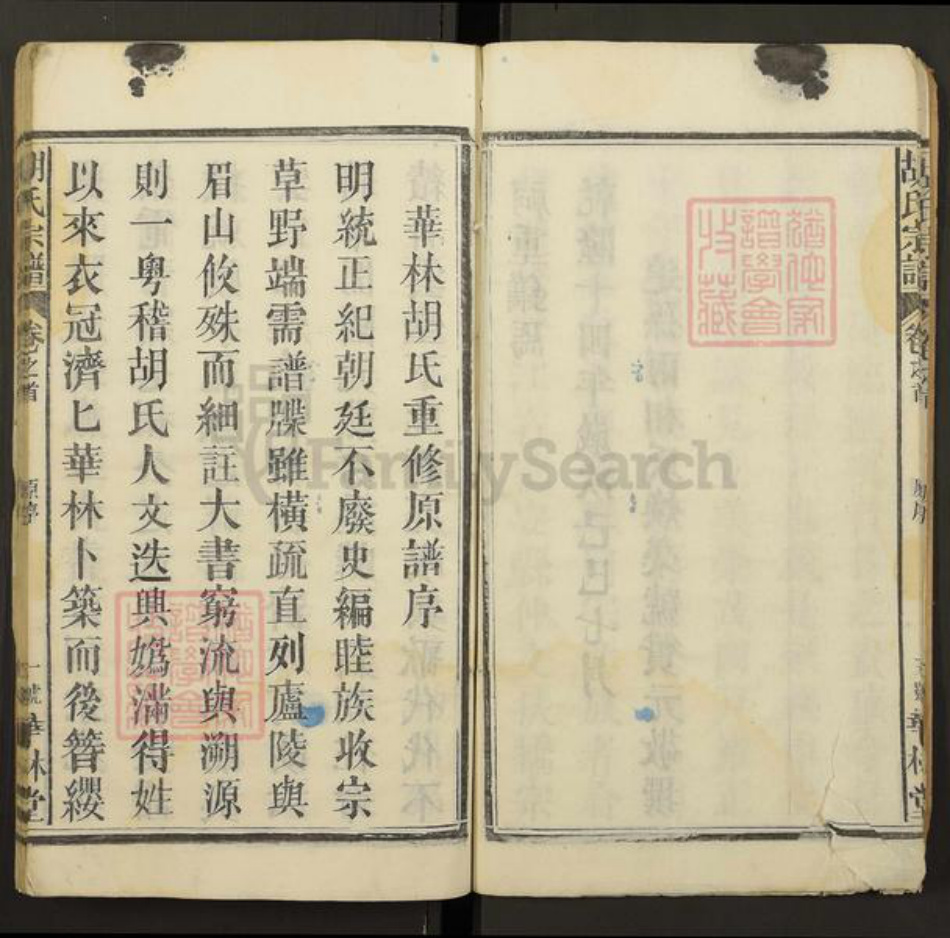 胡氏宗譜
卷之首
原序
華林堂
猶他家
譜學會
收藏
華林胡氏重修原譜序
明統正紀朝廷不廢史編睦族收宗
草野端需譜牒雖橫疏直列廬陵與
眉山攸殊而細註大書窮流與溯源
則一粵稽胡氏人文迭興媯滿得姓
以來衣冠濟匕華林卜築而後簪纓
胡氏宗譜
卷之首
原序
一號
華林堂
FamilySearch